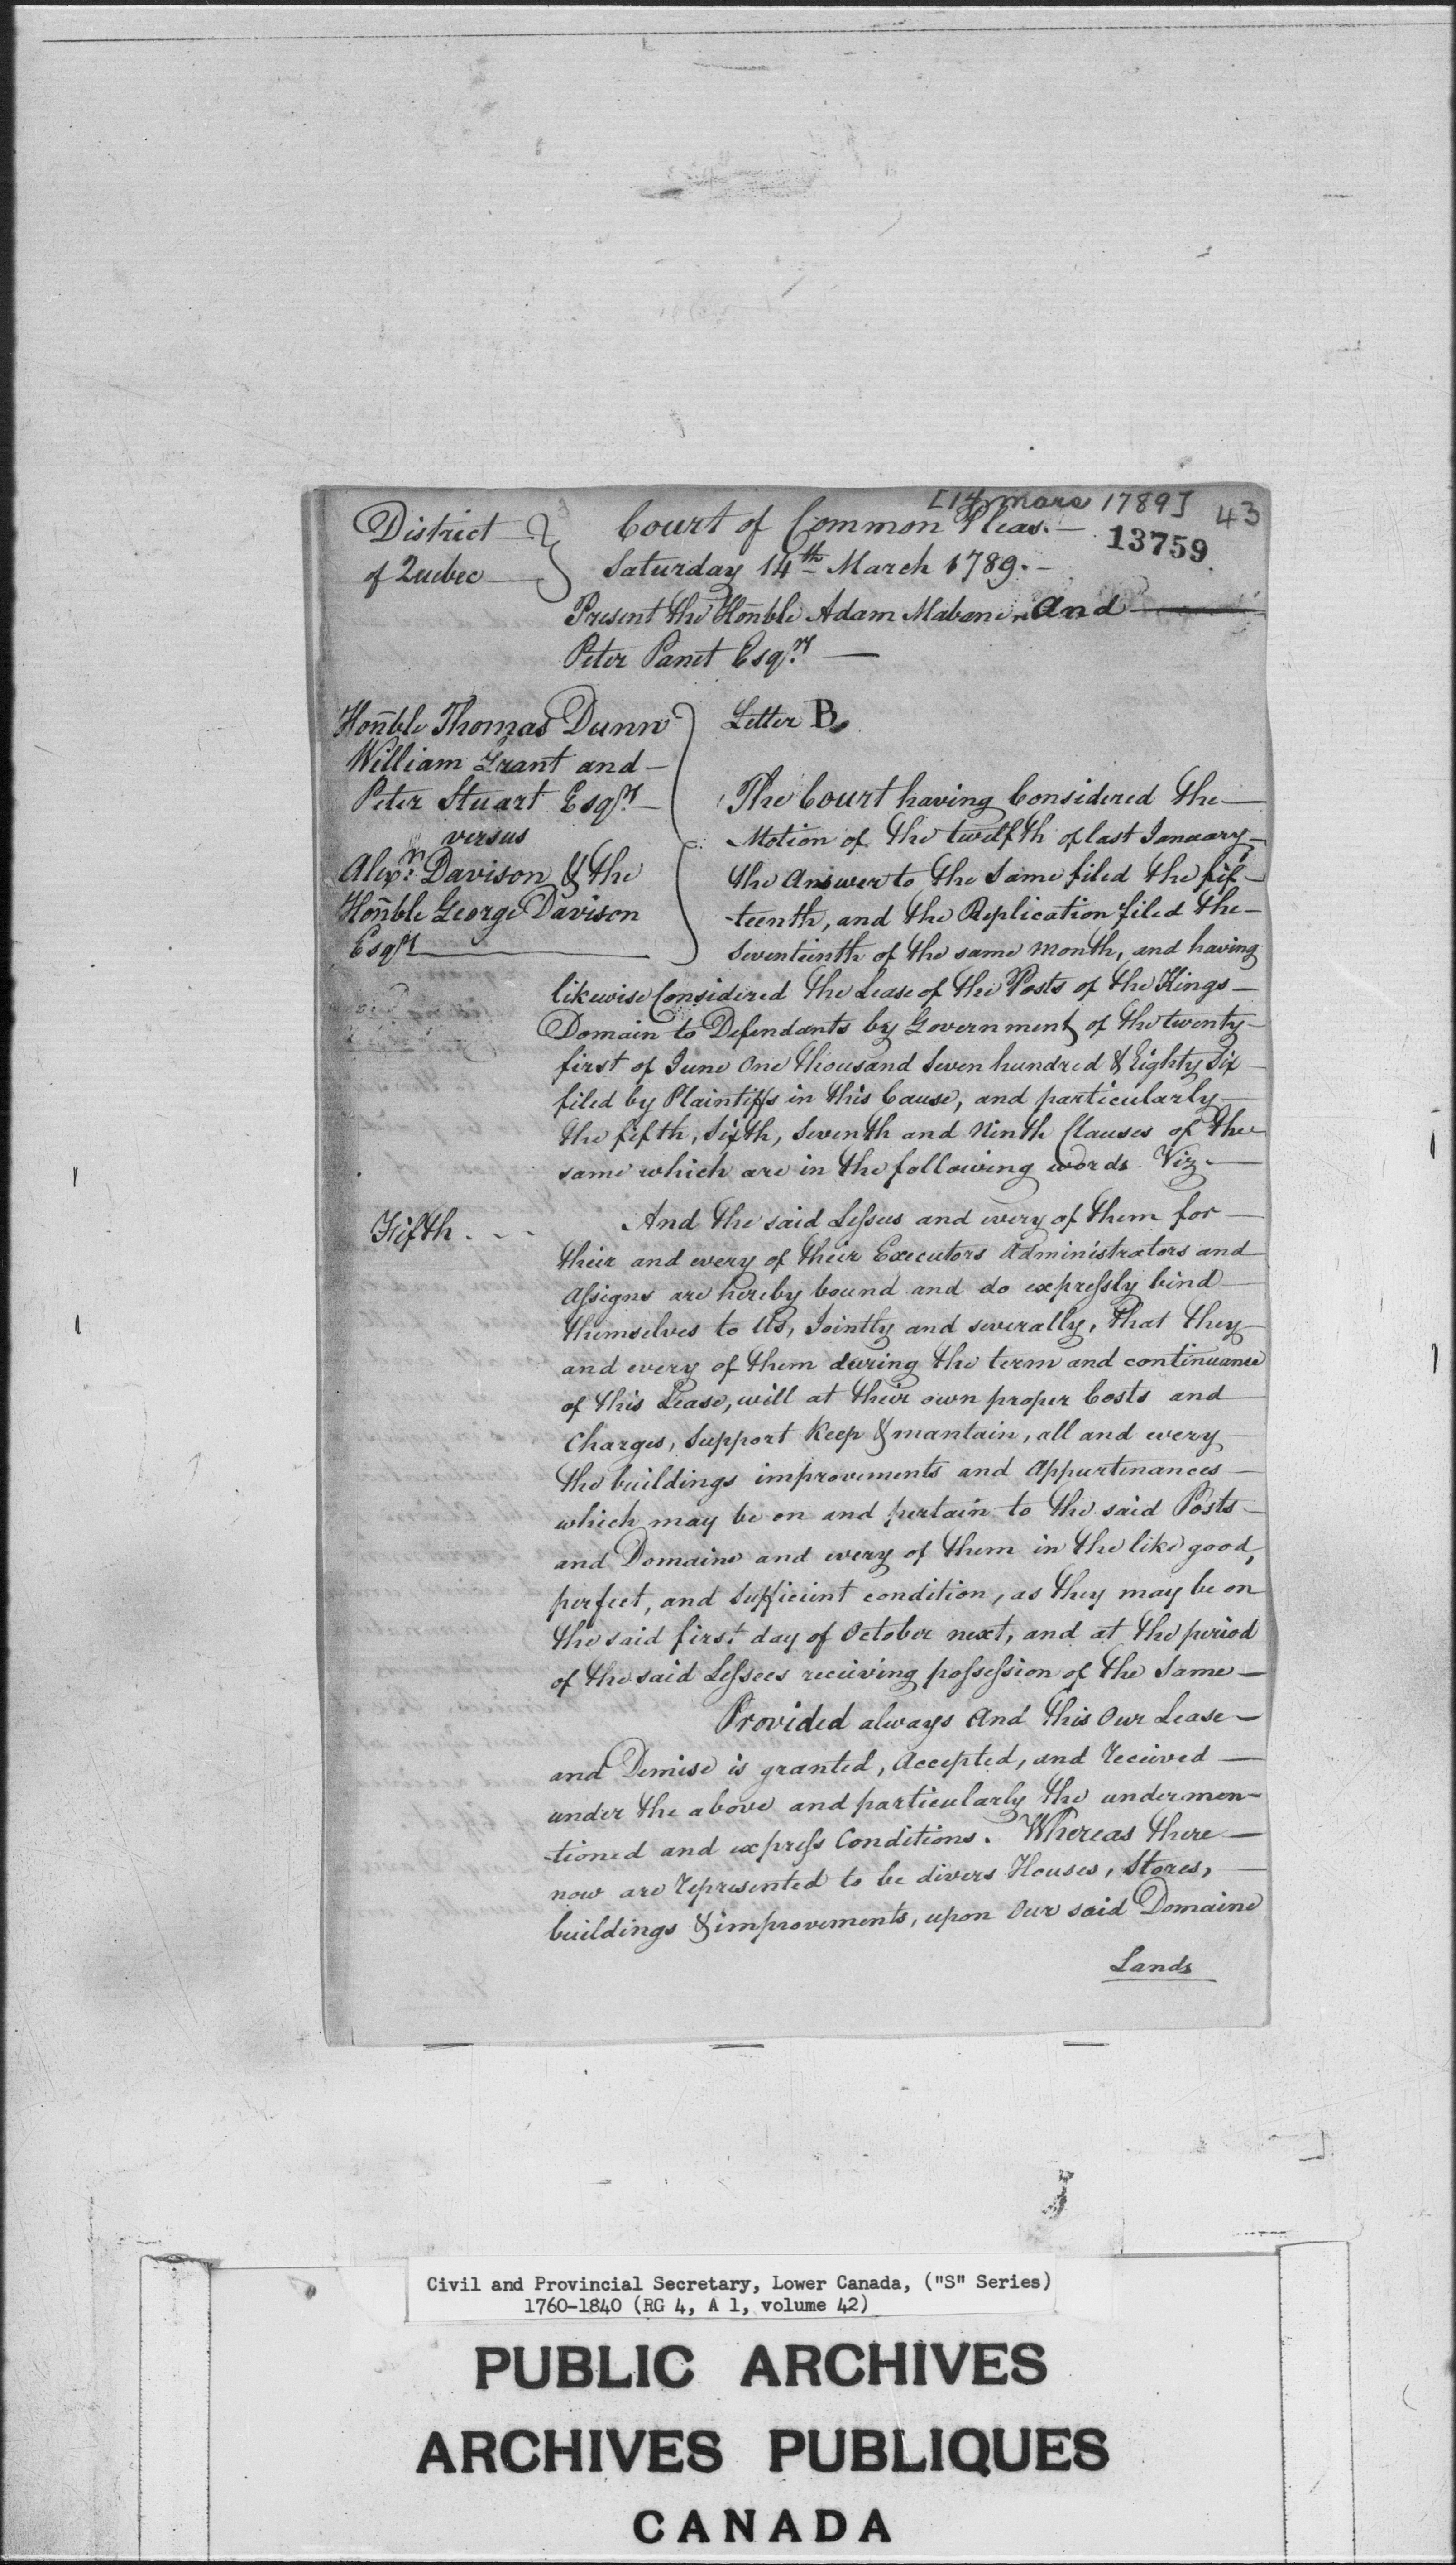 [14 mars 1789] 43
13759
District
of Quebec
Court of Common Pleas.
Saturday 14th March 1789.
Present the Honble Adam Mabane, and
Peter Panet Esqrs
Honble Thomas Dunn
William Grant and
Peter Stuart Esqrs
versus
Alexr Davison & the
Honble George Davison
Esqrs
Letter B.
The Court having Considered the
Motion of the twelfth of last January
the Answer to the Same filed the fif-
-teenth, and the Replication filed the
Seventeenth of the same month, and having
likewise Considered the Lease of the Posts of the Kings
Domain to Defendants by Government of the twenty
first of June One thousand Seven hundred & Eighty Six
filed by Plaintiffs in this Cause, and particularly
the fifth, Sixth, Seventh and Ninth Clauses of the
same which are in the following words. Viz.
Fifth . - -
And the said Lessees and every of them for
their and every of their Executors Administrators and
Assigns are hereby bound and do expressly bind
themselves to Us, Jointly and severally, that they
and every of them during the term and continuance
of this Lease, will at their own proper Costs and
Charges, Support Keep & mantain, all and every
the buildings improvements and Appurtenances
which may be on and pertain to the said Posts
and Domaine and every of them in the like good,
perfect, and Sufficient condition, as they may be on
the said first day of October next, and at the period
of the said Lessees receiving possession of the Same
Provided always And this Our Lease
and Demise is granted, Accepted, and Received
under the above and particularly the undermen-
-tioned and express Conditions. Whereas there
now are Represented to be divers Houses, Stores,
buildings & improvements, upon Our said Domaine
Lands
Civil and Provincial Secretary, Lower Canada, ("S" Series)
1760-1840 (RG 4, A 1, volume 42)
PUBLIC ARCHIVES
ARCHIVES PUBLIQUES
CANADA